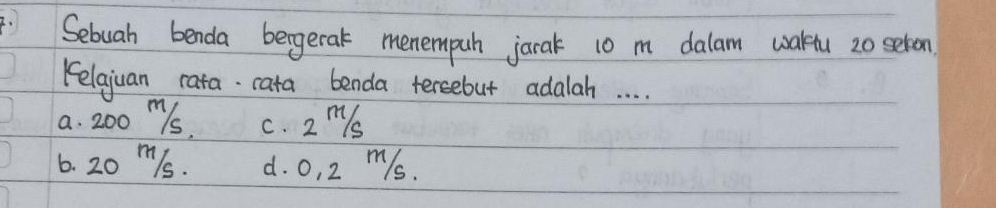 7. Sebuah benda bergerak menempuh jarak 10 m dalam waktu 20 sekon.
Kelajuan rata-rata benda tersebut adalah ....
a. 200 m/s. c. 2 m/s
b. 20 m/s. d. 0,2 m/s.